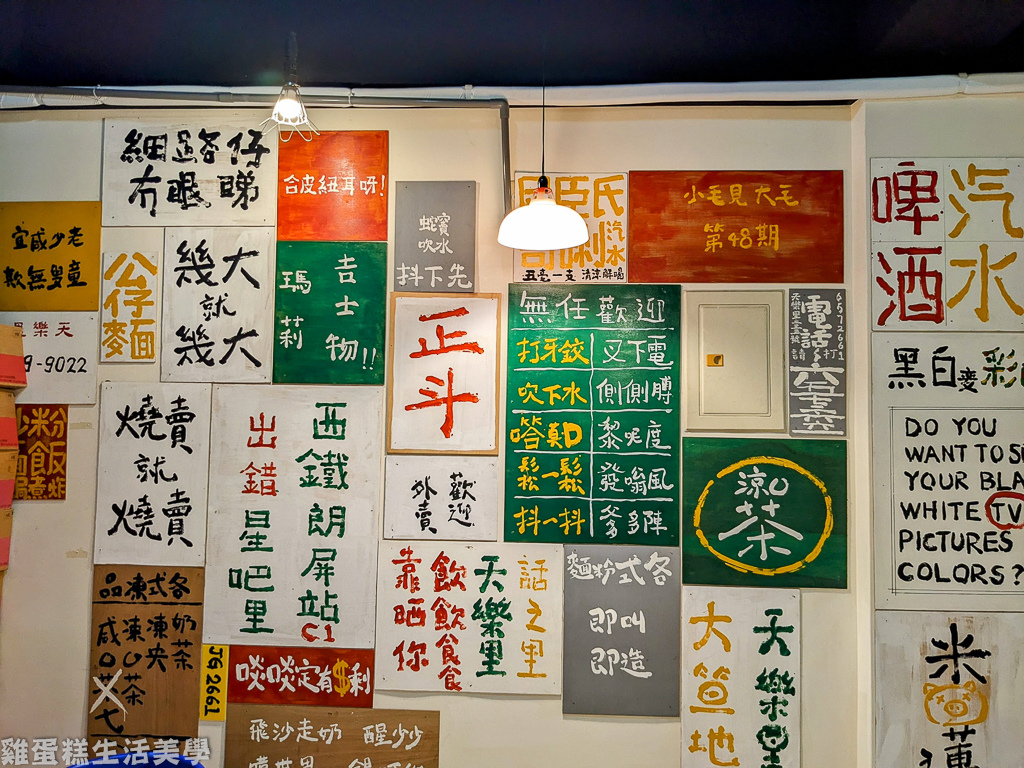 細路仔
冇眼睇
合皮紐耳呀!
宜咸少老
欺無嬰童
公仔
麵
幾大
就
幾大
吉士物!!
瑪莉
吹水
抖下先
正斗
汽水
五毫一支 清涼解喝
小毛見大毛
第48期
無任歡迎
打牙鉸 叉下電
吹下水 側側膊
黎呢度
鬆一鬆 發嗡風
抖一抖 爹多陣
電話
6572661
啤酒
汽水
天樂里
9-9022
粉飯
燒賣
就
燒賣
西鐵朗屏站
C1
出錯星吧里
歡迎
外賣
涼茶
黑白變彩
DO YOU
WANT TO S
YOUR BLA
WHITE TV
PICTURES
COLORS?
各式凍品
奶茶
凍央
凍
咸
話之里
天樂里
飲飲食食
靠晒你
各式粉麵
即叫
即造
天樂里
大笪地
米
JG 2661
啖啖定有$剩
飛沙走奶 醒少少
雞蛋糕生活美學